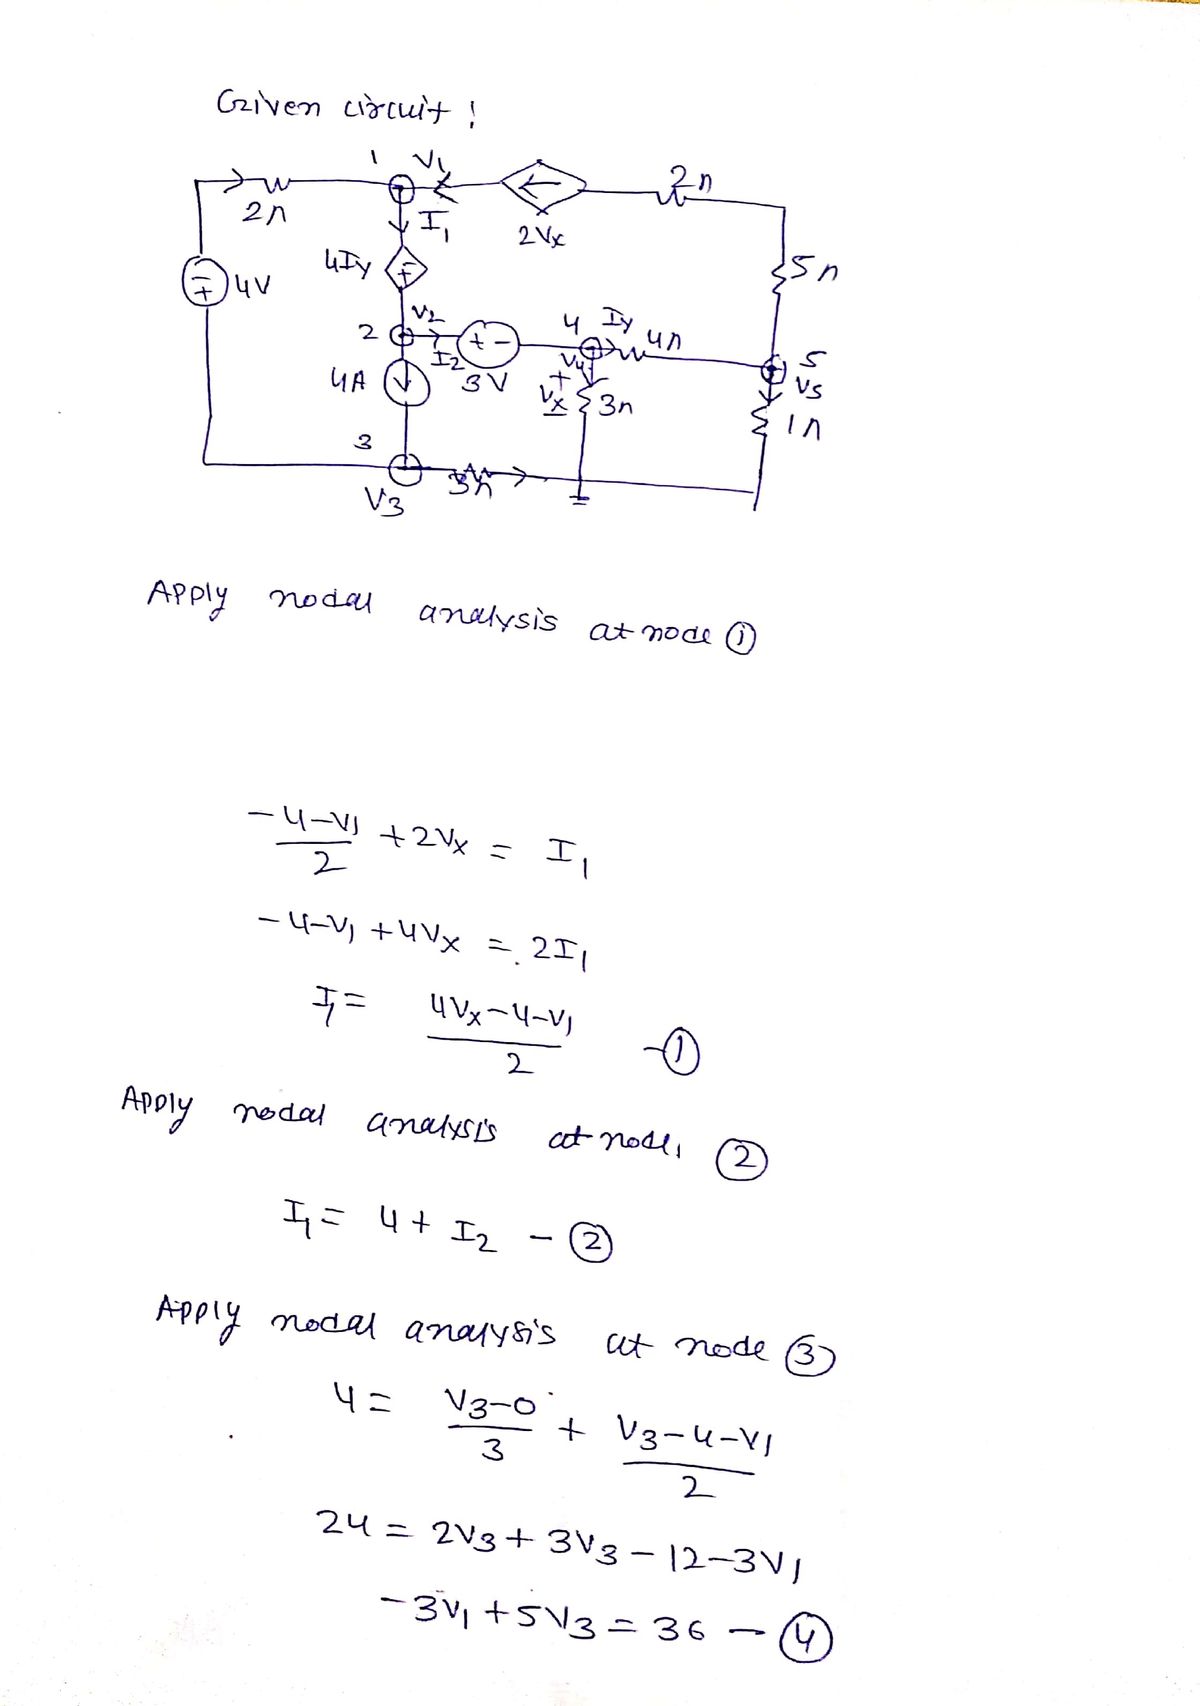 Given circuit !
1 V1 2Vx 2n
2n I1 5n
4V 4Iy
2 V2 I2 3V 4 Iy 4n 5
4A V4 + Vx - 3n V5 1n
3 V3 3n
Apply nodal analysis at node ①
-4-V1/2 + 2Vx = I1
-4-V1 + 4Vx = 2I1
I1 = 4Vx-4-V1/2 -①
Apply nodal analysis at node, ②
I1 = 4 + I2 - ②
Apply nodal analysis at node ③
4 = V3-0/3 + V3-4-V1/2
24 = 2V3 + 3V3 - 12 - 3V1
-3V1 + 5V3 = 36 - ④